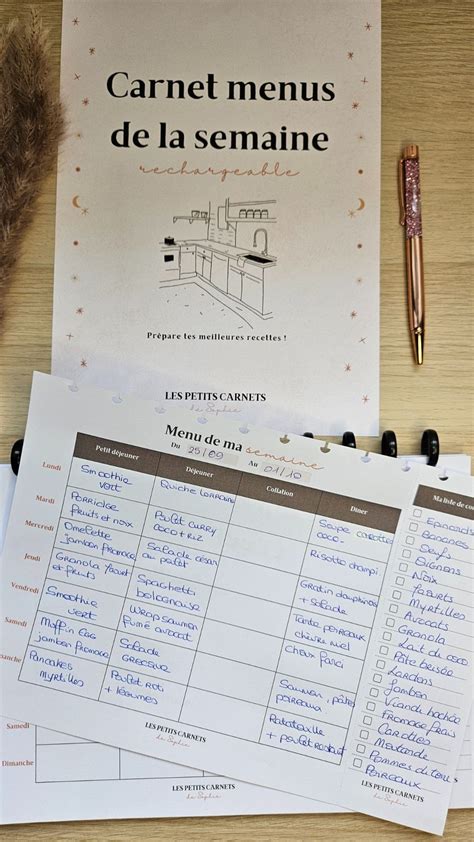 Carnet menus
de la semaine
rechargeable
Prépare tes meilleures recettes !
LES PETITS CARNETS
de Sophie
Menu de ma semaine
Du 25/09 Au 01/10
Petit déjeuner
Déjeuner
Collation
Diner
Lundi
Smoothie
vert
Quiche Lorraine
Soupe carottes
coco.
Mardi
Porridge
fruits et noix
Poulet curry
coco + riz
Risotto champi
Mercredi
Omelette
jambon fromage
Salade césar
au poulet
Gratin dauphinois
+ salade
Jeudi
Granola yaourt
et fruits
Spaghetti
bolognaise
Tarte poireaux
chèvre miel
Vendredi
Smoothie
vert
Wrap saumon
fumé avocat
Choux farci
Samedi
Muffin Egg
jambon fromage
Salade
Grecque
Saumon, pâtes
poireaux
anche
Pancakes
Myrtilles
Poulet roti
+ légumes
Ratatouille
+ poulet
LES PETITS CARNETS
de Sophie
Ma liste de co
Epinards
Bananes
Oeufs
Oignons
Noix
Yaourts
Myrtilles
Avocats
Granola
Lait de coco
Pâte brisée
Lardons
Jambon
Viande hachée
Fromage frais
Carottes
Moutarde
Pommes de terres
Poireaux
LES PETITS CARNETS
de Sophie
Samedi
Dimanche
LES PETITS CARNETS
de Sophie